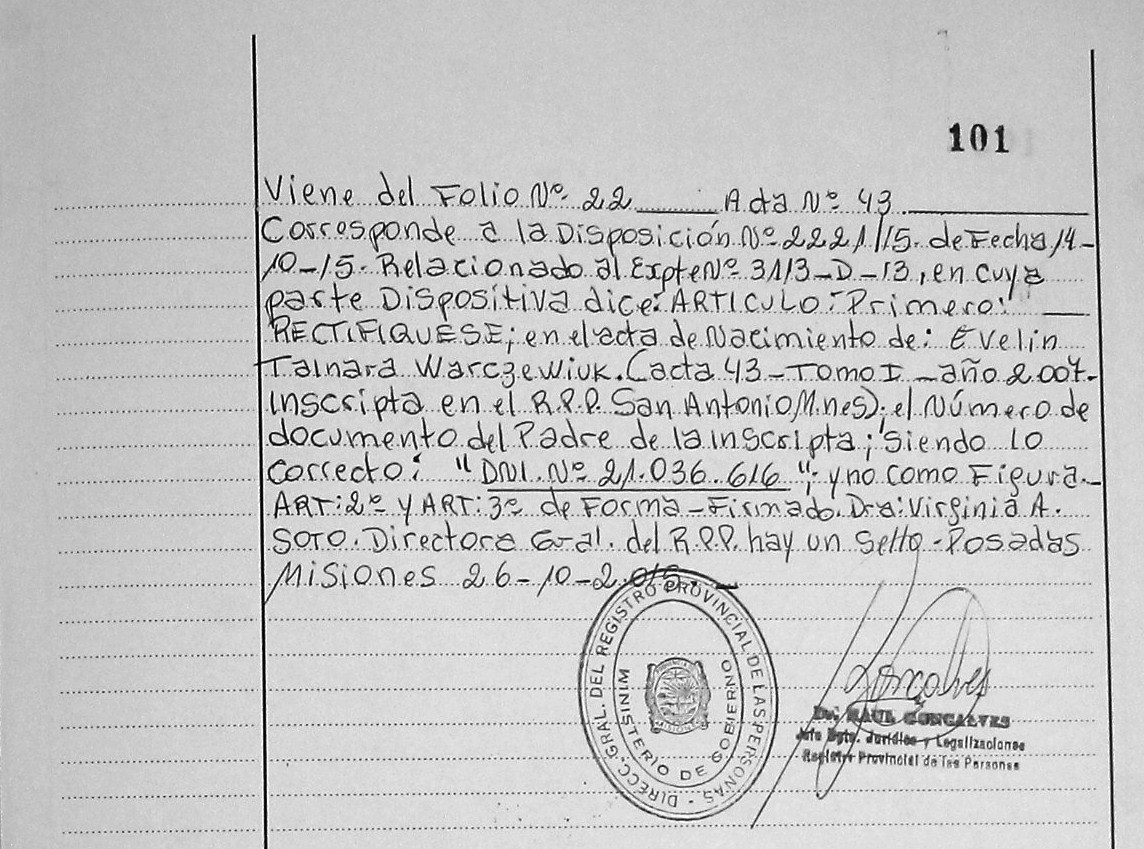 101
Viene del Folio Nº 22 Acta Nº 43
Corresponde a la Disposición Nº 2221/15. de Fecha 14-
10-15. Relacionado al Expte Nº 3113-D-13, en cuya
parte Dispositiva dice: ARTICULO: Primero:
RECTIFIQUESE; en el acta de Nacimiento de: Evelin
Tainara Warczewiuk. (acta 43-Tomo I - año 2.007-
Inscripta en el R.P.P. San Antonio Mnes); el Número de
documento del Padre de la inscripta; siendo lo
correcto: "DNI. Nº 21.036.616"; y no como Figura.-
ART: 2º y ART: 3º de Forma-Firmado. Dra: Virginia A.
Soto. Directora Gral. del R.P.P. hay un Sello.-Posadas
Misiones 26-10-2.015.-
DIRECC. GRAL. DEL REGISTRO PROVINCIAL DE LAS PERSONAS -
MINISTERIO DE GOBIERNO
MISIONES
Goncalves
Dr. RAUL GONCALVES
Jefe Dpto. Jurídico y Legalizaciones
Registro Provincial de las Personas